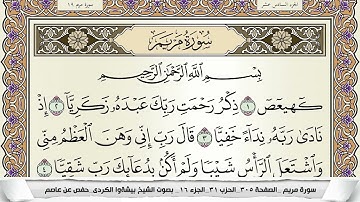 الجزء السادس عشر سورة مريم ١٩
سُورَةُ مَرْيَمَ
بِسْمِ اللَّهِ الرَّحْمَٰنِ الرَّحِيمِ
كٓهيعٓصٓ ۝١ ذِكْرُ رَحْمَتِ رَبِّكَ عَبْدَهُۥ زَكَرِيَّآ ۝٢ إِذْ
نَادَىٰ رَبَّهُۥ نِدَآءً خَفِيًّا ۝٣ قَالَ رَبِّ إِنِّى وَهَنَ ٱلْعَظْمُ مِنِّى
وَٱشْتَعَلَ ٱلرَّأْسُ شَيْبًا وَلَمْ أَكُنۢ بِدُعَآئِكَ رَبِّ شَقِيًّا ۝٤
سورة مريم الصفحة ٣٠٥ الحزب ٣١ الجزء ١٦ بصوت الشيخ بيشةوا الكردى حفص عن عاصم